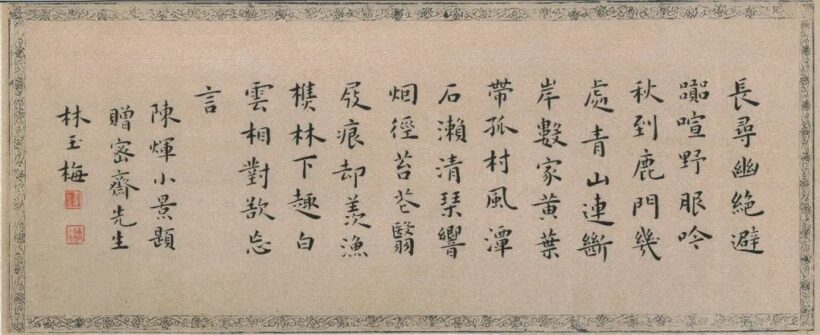 長尋幽絕避
喧野服吟
秋到鹿門幾
處青山連斷
岸數家黃葉
帶孤村風潭
石瀨清琴響
烟徑苔花翳
屐痕却羨漁
樵林下趣白
雲相對欲忘
言
陳煇小景題
贈密齋先生
林玉梅